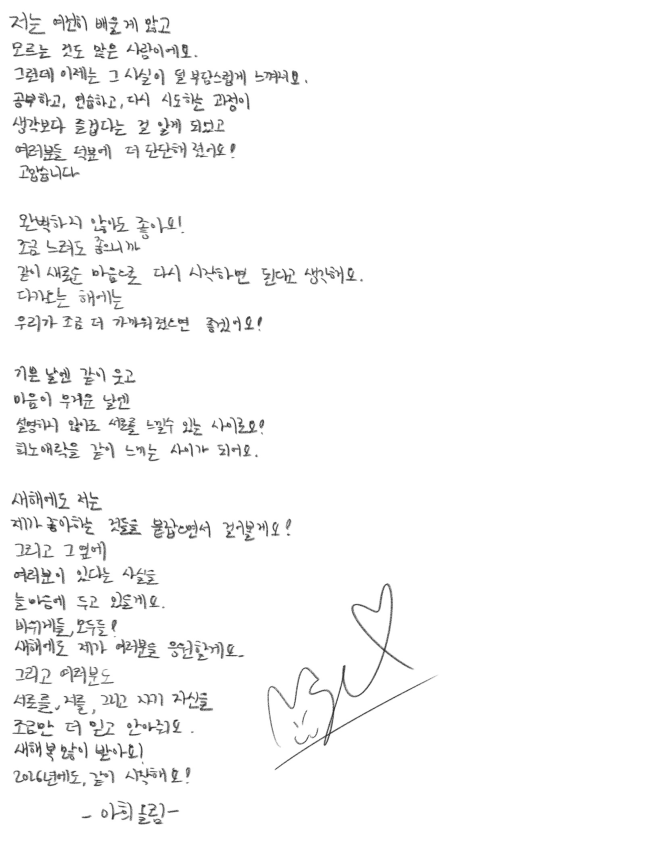 저는 여전히 배울게 많고
모르는 것도 많은 사람이에요.
그런데 이제는 그 사실이 덜 부담스럽게 느껴져요.
공부하고, 연습하고, 다시 시도하는 과정이
생각보다 즐겁다는 걸 알게 되었고
여러분들 덕분에 더 단단해 졌어요!
고맙습니다
완벽하지 않아도 좋아요!
조금 느려도 좋으니까
같이 새로운 마음으로 다시 시작하면 된다고 생각해요.
다가오는 해에는
우리가 조금 더 가까워졌으면 좋겠어요!
기쁜 날엔 같이 웃고
마음이 무거운 날엔
설명하지 않아도 서로를 느낄수 있는 사이로요!
희노애락을 같이 느끼는 사이가 되어요.
새해에도 저는
제가 좋아하는 것들을 붙잡으면서 걸어볼게요!
그리고 그 옆에
여러분이 있다는 사실을
늘 마음에 두고 있을게요.
바위게들, 모두들!
새해에도 제가 여러분을 응원할게요.
그리고 여러분도
서로를, 저를, 그리고 자기 자신을
조금만 더 믿고 안아줘요.
새해 복 많이 받아요!
2026년에도, 같이 시작해요!
- 아희 올림 -